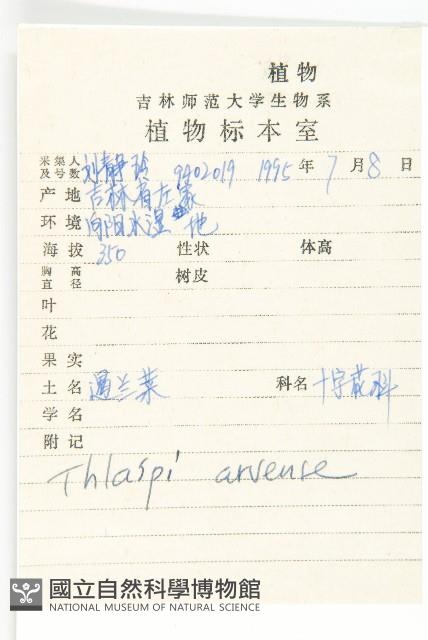 植物
吉林师范大学生物系
植物标本室
采集人及号数 刘静玲 9402019 1995年7月8日
产地 吉林省左家
环境 向阳水湿地
海拔 350 性状 体高
胸高直径 树皮
叶
花
果实
土名 遏兰菜 科名 十字花科
学名
附记
Thlaspi arvense
國立自然科學博物館
NATIONAL MUSEUM OF NATURAL SCIENCE